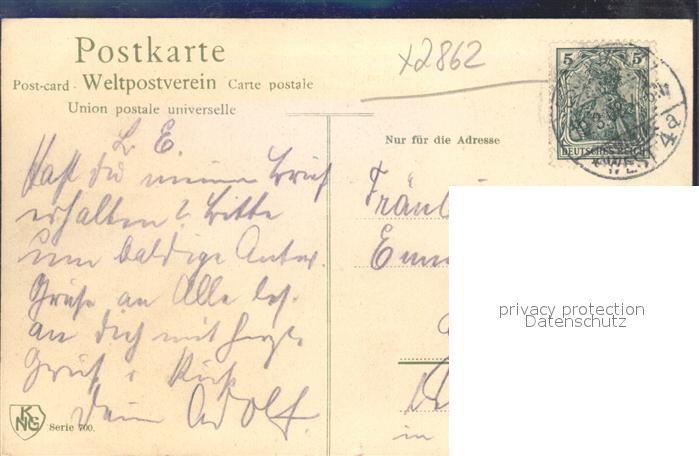 Postkarte
Post-card - Weltpostverein Carte postale
Union postale universelle
x2862
5 5
DEUTSCHES REICH
4a
Nur für die Adresse
L. E.
Hast du meinen Brief
erhalten? Bitte
um baldige Antw.
Grüße an Alle bes.
an dich mit herzl.
Gruß u. Kuß
Dein Adolf.
Fräul
Emm
in
privacy protection
Datenschutz
KNG
Serie 700.